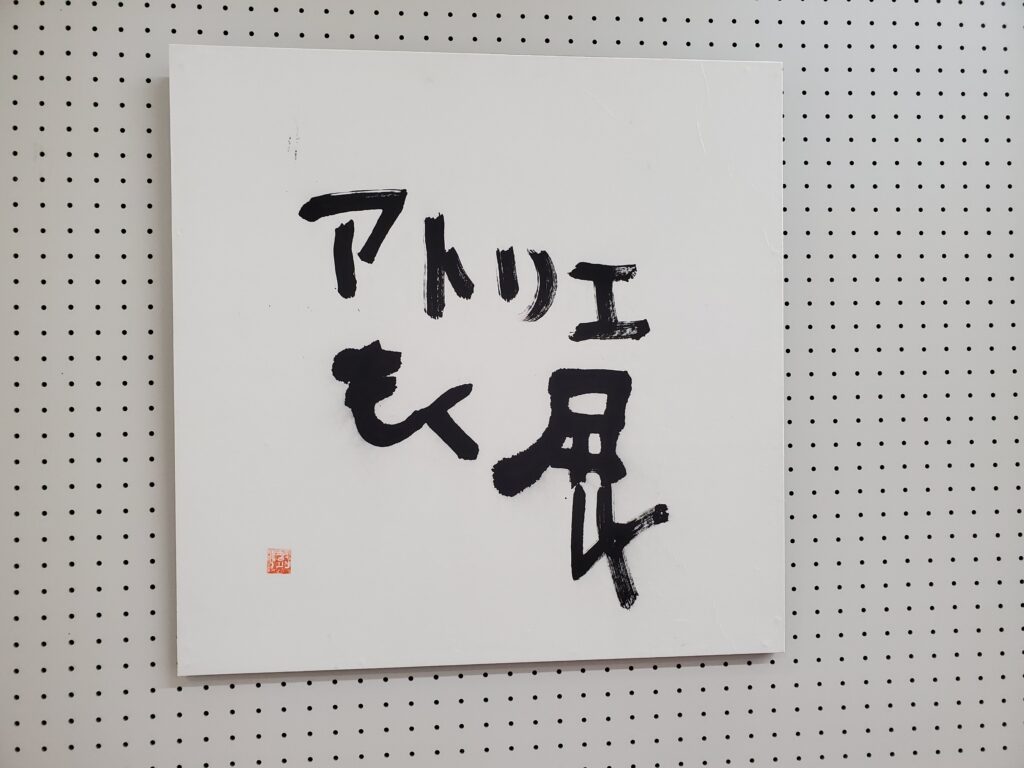 アトリエ
もく展